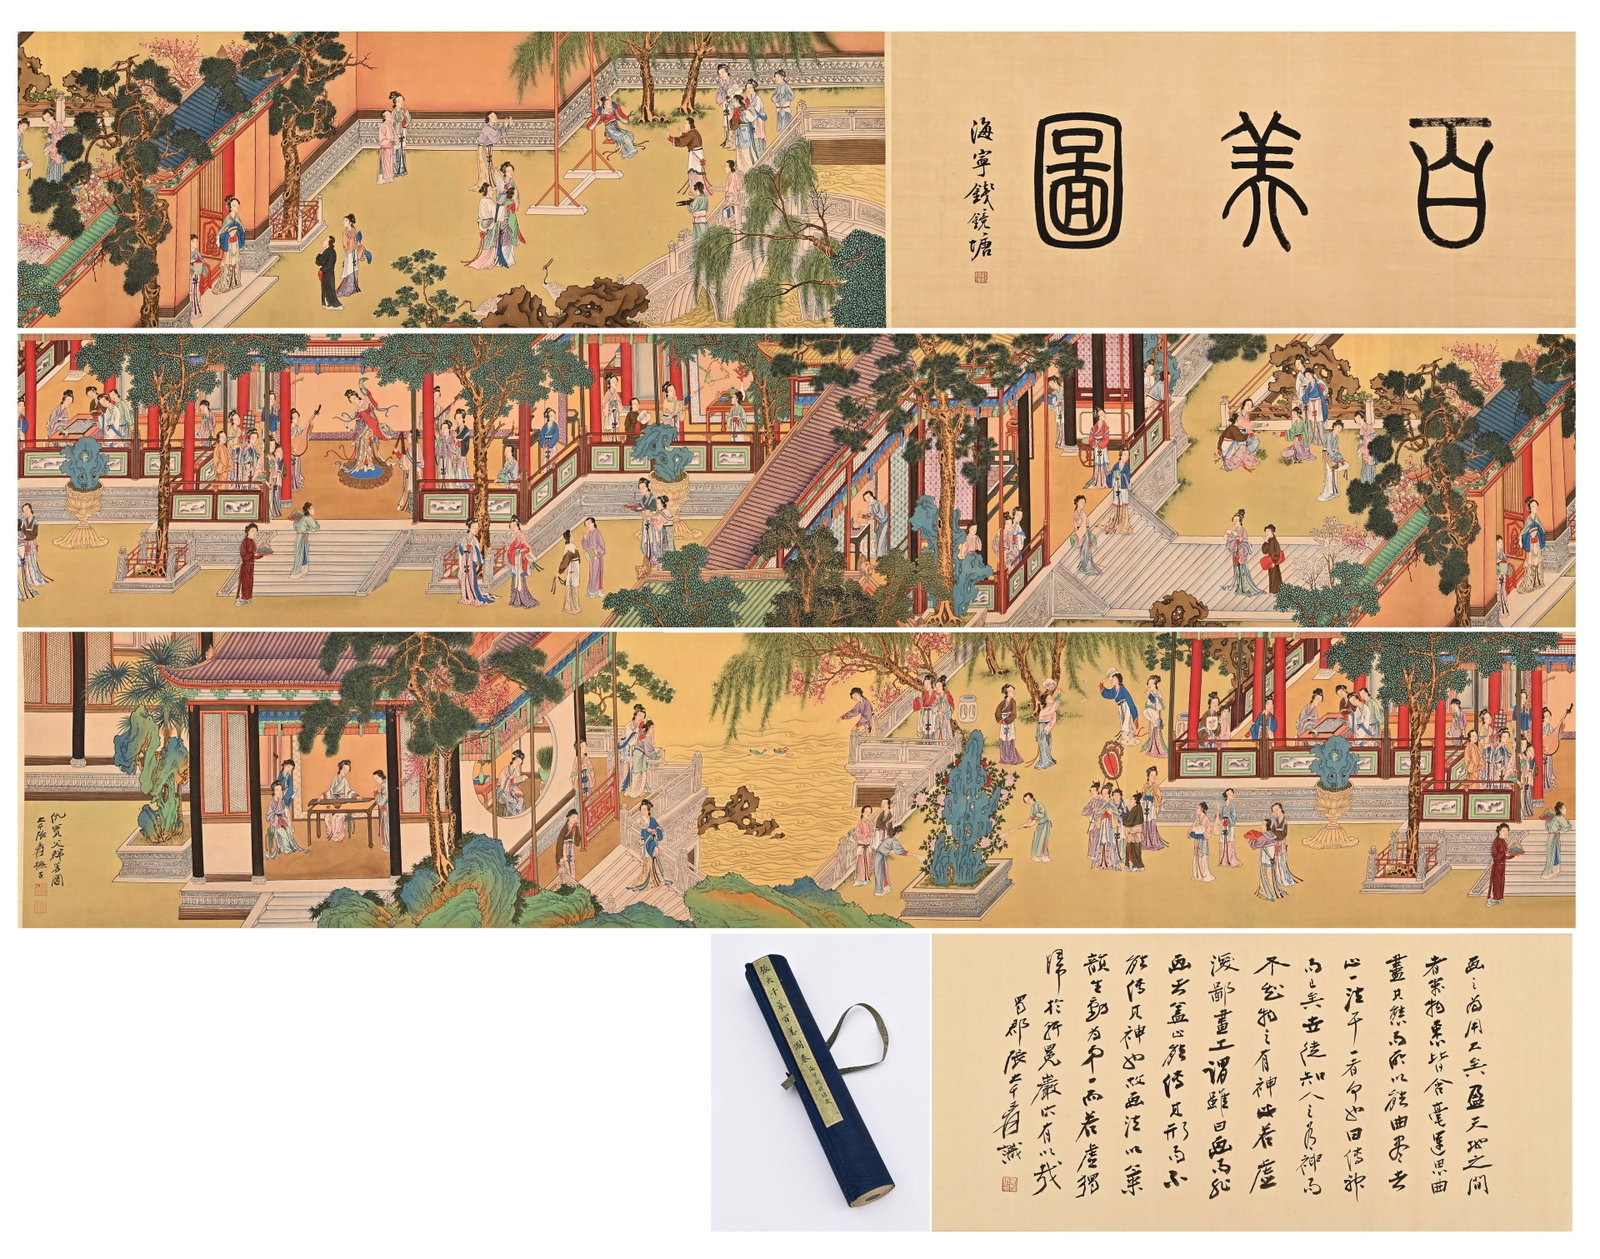 百美圖
海寧錢鏡塘
仇實父群芳圖
大千張爰橅古
張大千摹百美圖卷
画之為用大矣盈天地之間
者萬物悉皆含毫運思曲
盡其態而所以能曲盡者
止一法耳一者何也曰傳神
而已矣世徒知人之有神而
不知物之有神此若虛
深鄙畫工謂雖曰画而非
画者蓋止能傳其形而不
能傳其神也故画法以氣
韻生動為第一而若虛獨
歸於軒冕巖穴有以哉
蜀郡張大千爰識